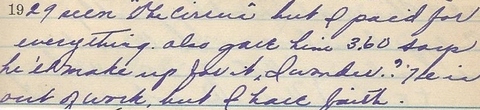 1929 seen "The Circus" but I paid for
everything. also gave him 3.60 says
he'll make up for it, I wonder.? He is
out of work, but I have faith.